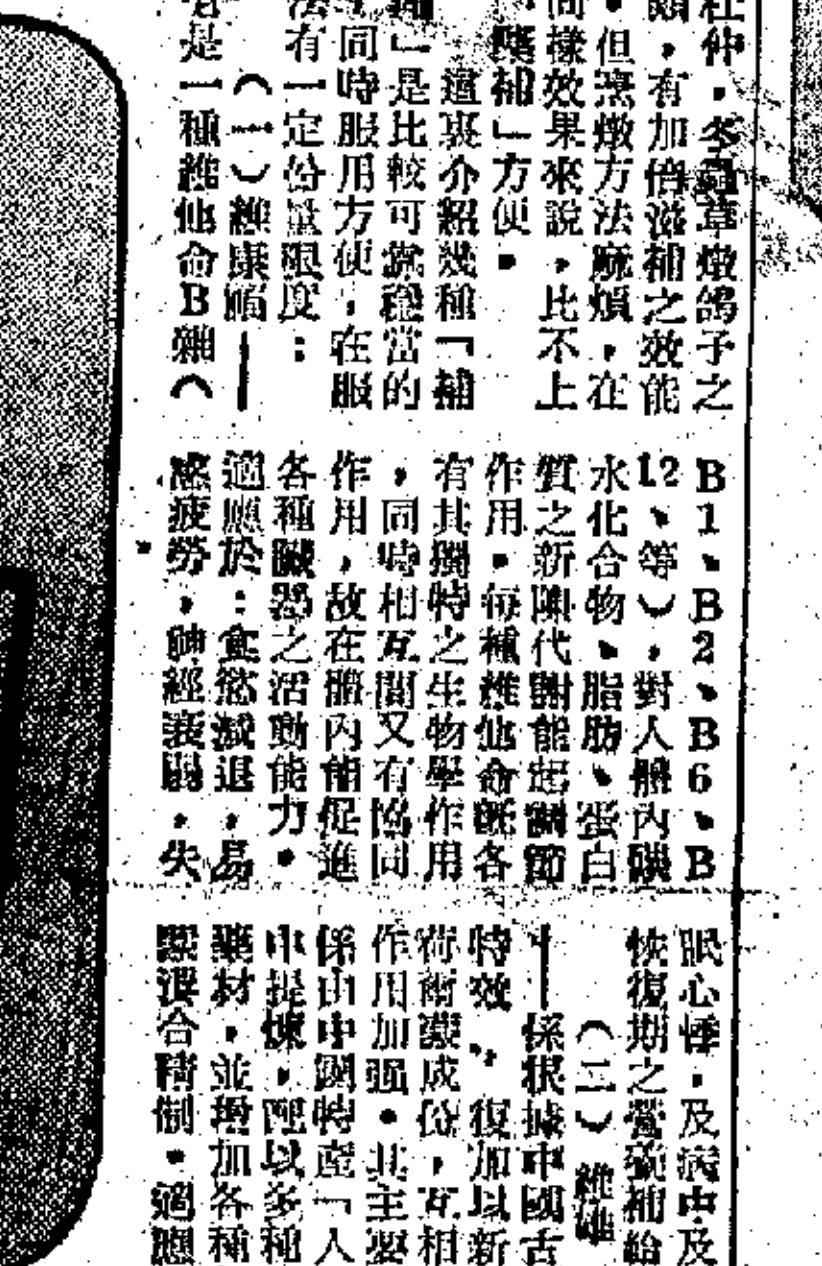 杜仲，冬蟲草燉鴿子之
類，有加倍滋補之效能
，但烹燉方法麻煩，在
同樣效果來說，比不上
補」方便。
這裏介紹幾種「補
」是比較可靠穩當的
，同時服用方便，在服
法有一定份量限度：
（一）維康
是一種維他命B雜（
B1、B2、B6、B
12、等），對人體內碳
水化合物、脂肪、蛋白
質之新陳代謝能起調節
作用。每種維他命旣各
有其獨特之生物學作用
，同時相互間又有協同
作用，故在體內能促進
各種臟器之活動能力。
適應於：食慾減退，易
感疲勞，神經衰弱，失
眠心悸，及病中及
恢復期之營養補給
（二）維雄
—係根據中國古
特效，復加以新
荷爾蒙成份，互相
作用加强。其主要
係由中國特產「人
中提煉，配以多種
藥材，並增加各種
合精制。適應